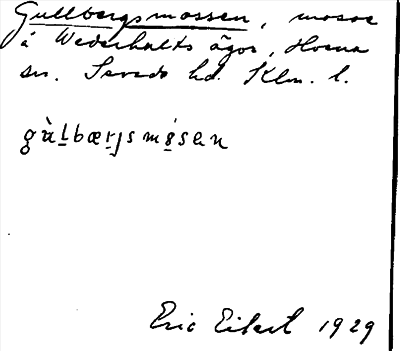 Gullbergsmossen, mosse
å Wederhults ägor, Horna
sn. Sevede hd. Klm. l.
gùḷbæṛjsmó̤sen
Eric Eckert 1929